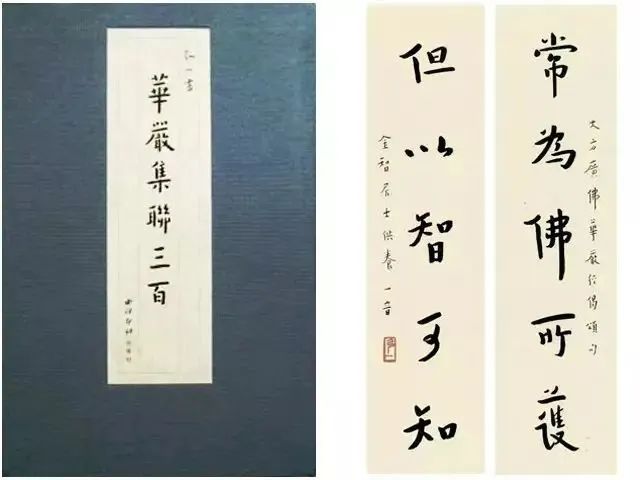 弘一書
華嚴集聯三百
西泠印社
大方廣佛華嚴經偈頌句
常為佛所護
但以智可知
金智居士供養 一音